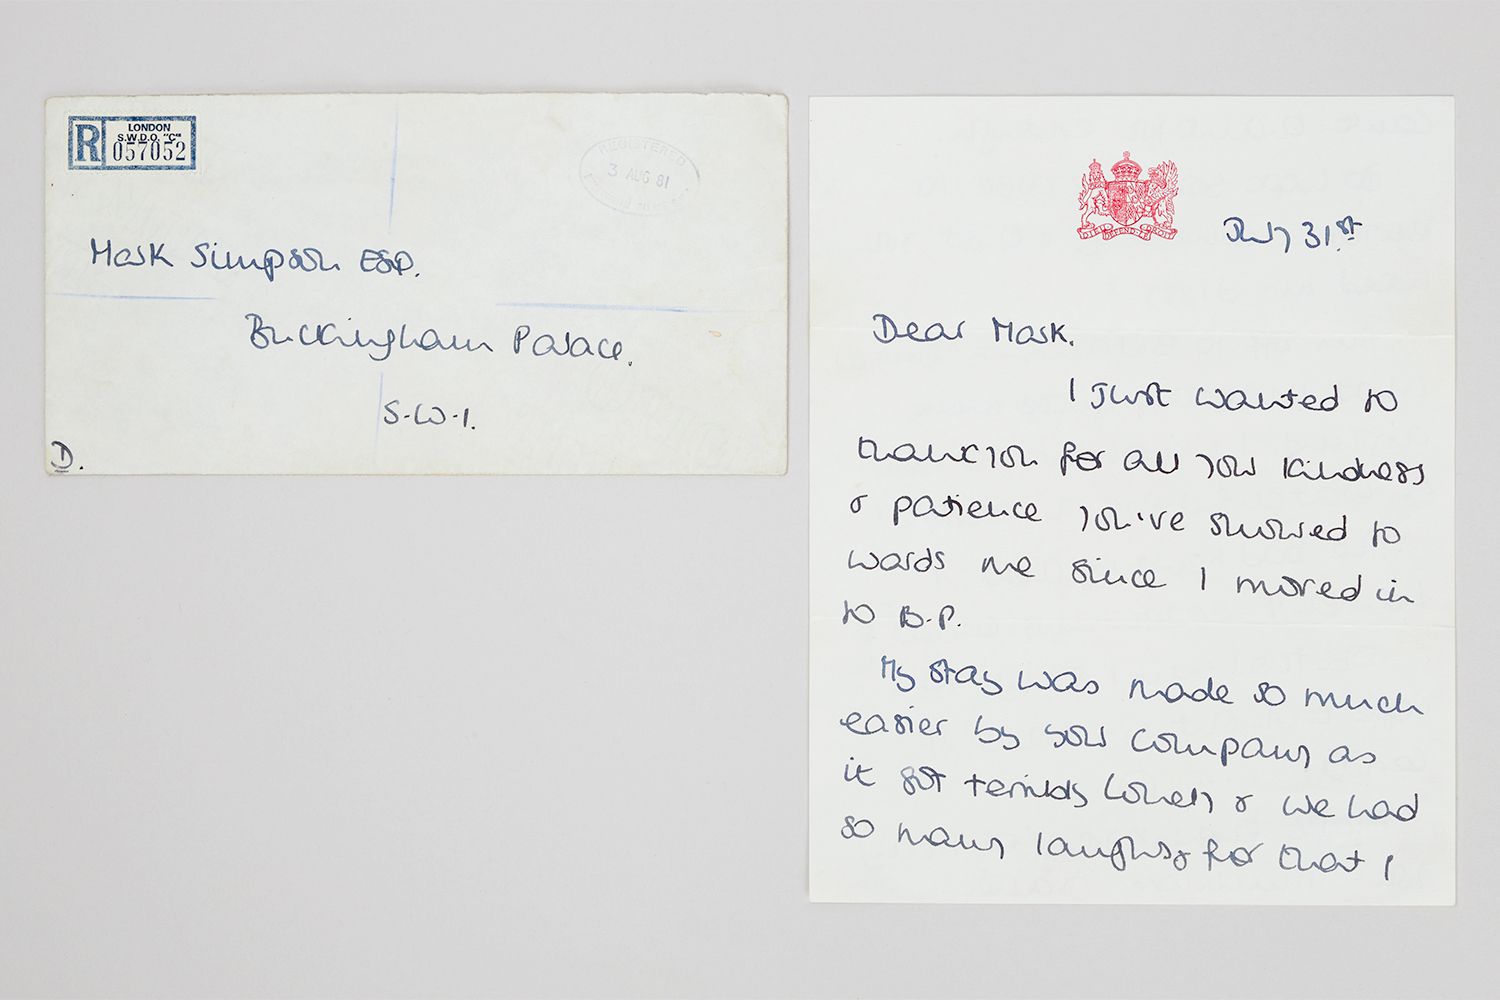 R
LONDON
S.W.D.O. "C"
057052
REGISTERED
3 AUG 81
Mark Simpson ESQ.
Buckingham Palace.
S.W.1.
D.
DIEU DEFEND LE DROIT
July 31st
Dear Mark.
I Just wanted to
thank you for all your kindness
& patience you've showed to
wards me since I moved in
to B.P.
My stay was made so much
easier by your company as
it got terribly lonely & we had
so many laughs & for that I